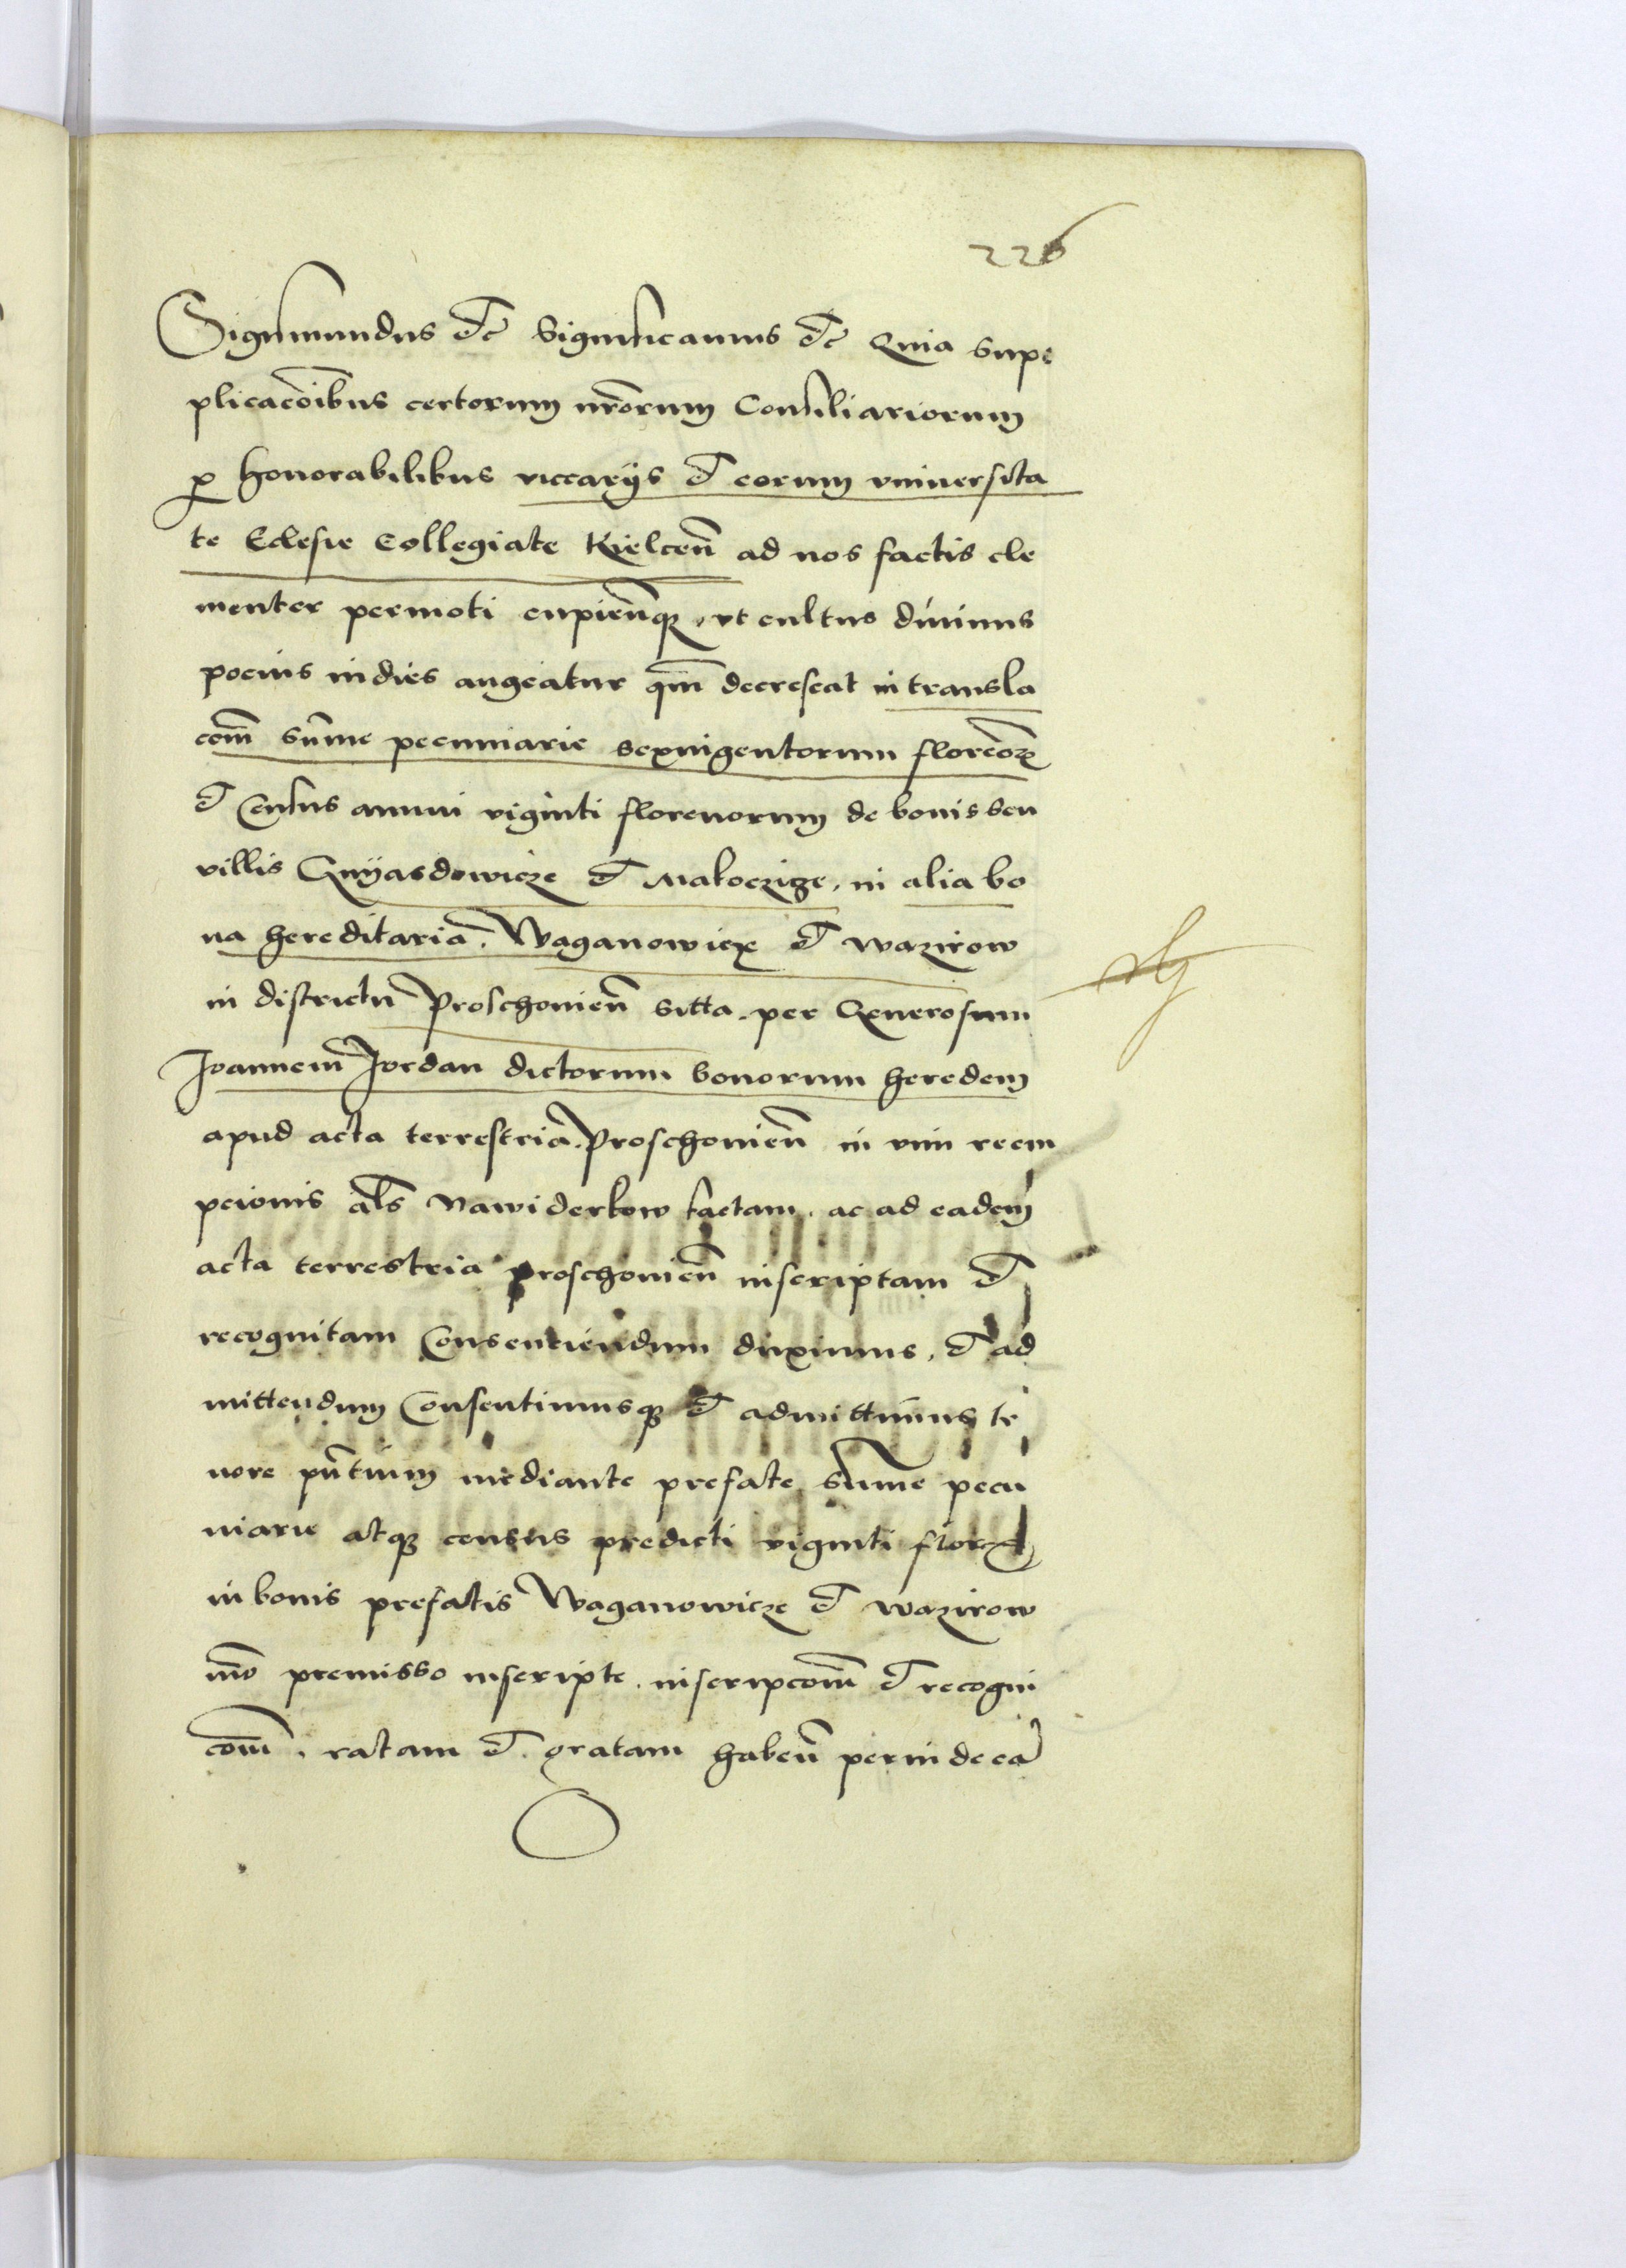 226
Sigismundus etc Significamus etc Quia sup
plicacõibus certorum nrõrum Consiliariorum
p honorabilibus viccarijs et eorum vniuersita
te Eclesie Collegiate Kielceñ ad nos factis cle
menter permoti cupieñq3 vt cultus diuinus
pocius indies augeatur qm̃ decrescat in transla
com̃ sum̃e pecuniarie sexingentorum florenor̃
et Census annui viginti florenorum de bonis seu
villis Gnyasdowicze et Maloczice, in alia bo
na hereditaria. Waganowicze et wazirow
in districtu Proschovieñ sitta. per Generosum
Joannem Jordan dictorum bonorum heredem
apud acta terrestria. Proschovieñ in vim reem
pcionis als Nawiderkow factam. ac ad eadem
acta terrestria proschovieñ inscriptam et
recognitam Consentiendum duximus, et ad
mittendum Consentimusq3 et admittimus te
nore pñtium mediante prefate sum̃e pecu
niarie atq3 census predicti viginti flor
in bonis prefatis Waganowicze et wazirow
mõ premisso inscripte. inscripcom̃ et recogni
com̃. ratam et gratam habeñ perinde ea